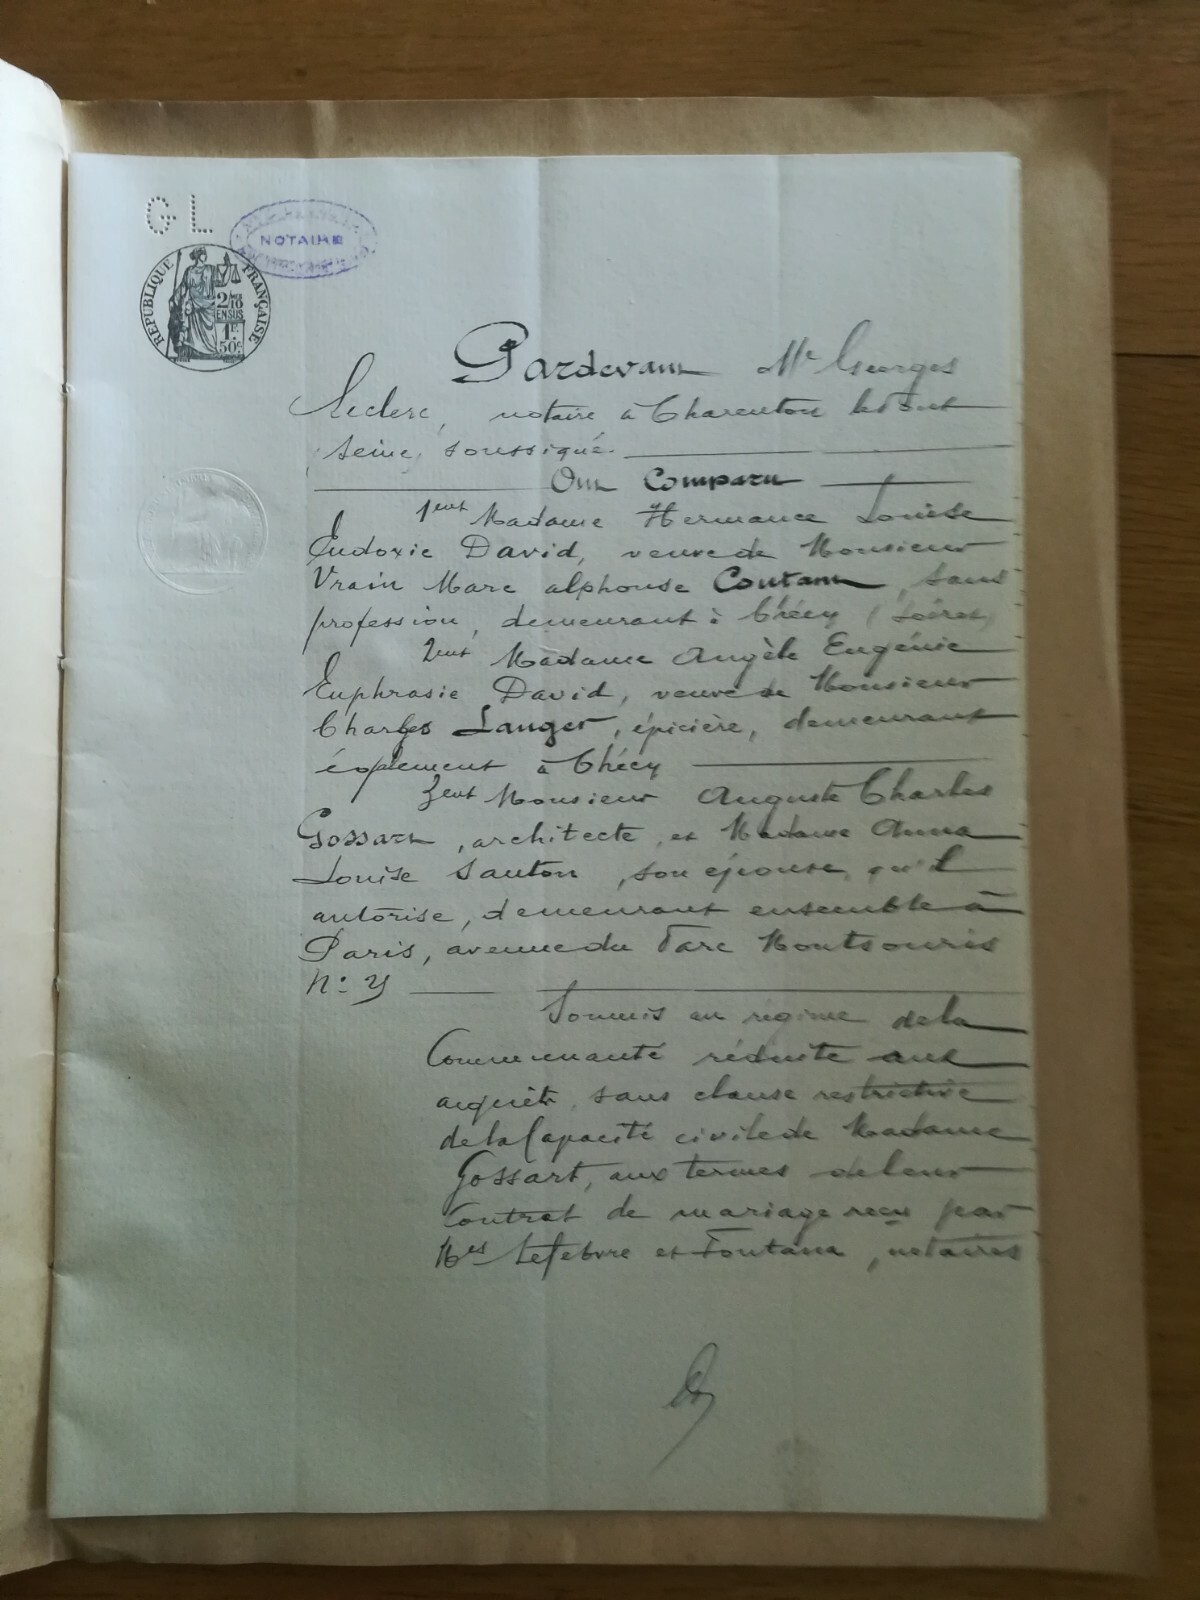 GL
NOTAIRE
RÉPUBLIQUE FRANÇAISE
2/10
EN SUS
1F.
50c
Pardevant Me Georges
Leclerc, notaire à Charenton le Pont
(Seine) soussigné.
Ont Comparu
1ent Madame Hermance Louise
Eudoxie David, veuve de Monsieur
Vrain Marc alphonse Coutant, sans
profession, demeurant à Chécy (Loiret)
2ent Madame Angèle Eugénie
Euphrasie David, veuve de Monsieur
Charles Langer, épicière, demeurant
également à Chécy
3ent Monsieur Auguste Charles
Gossart, architecte, et Madame Anna
Louise Santon, son épouse, qu'il
autorise, demeurant ensemble à
Paris, avenue du Parc Montsouris
No
Soumis au régime de la
Communauté réduite aux
acquêts, sans clause restrictive
de la Capacité civile de Madame
Gossart, aux termes de leur
Contrat de mariage reçu par
Mes Lefebvre et Fontana, notaires